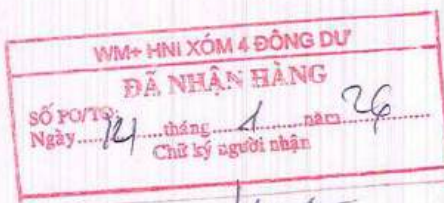 WM+ HNI XÓM 4 ĐÔNG DƯ
ĐÃ NHẬN HÀNG
SỐ PO/TO:
Ngày 14 tháng 1 năm 26
Chữ ký người nhận